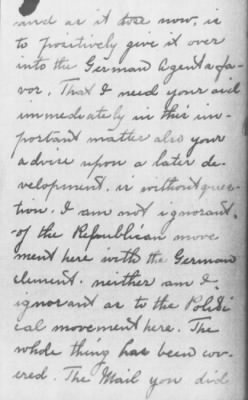 and as it dose now, is
to positively give it over
into the German Agents fa-
vor. That I need your aid
immediately in this im-
portant matter also your
advise upon a later de-
velopment. is without ques-
tion. I am not ignorant.
of the Republican move
ment here with the German
element. neither am I.
ignorant as to the Politi
cal movement here. The
whole thing has been cov-
ered. The Mail you did